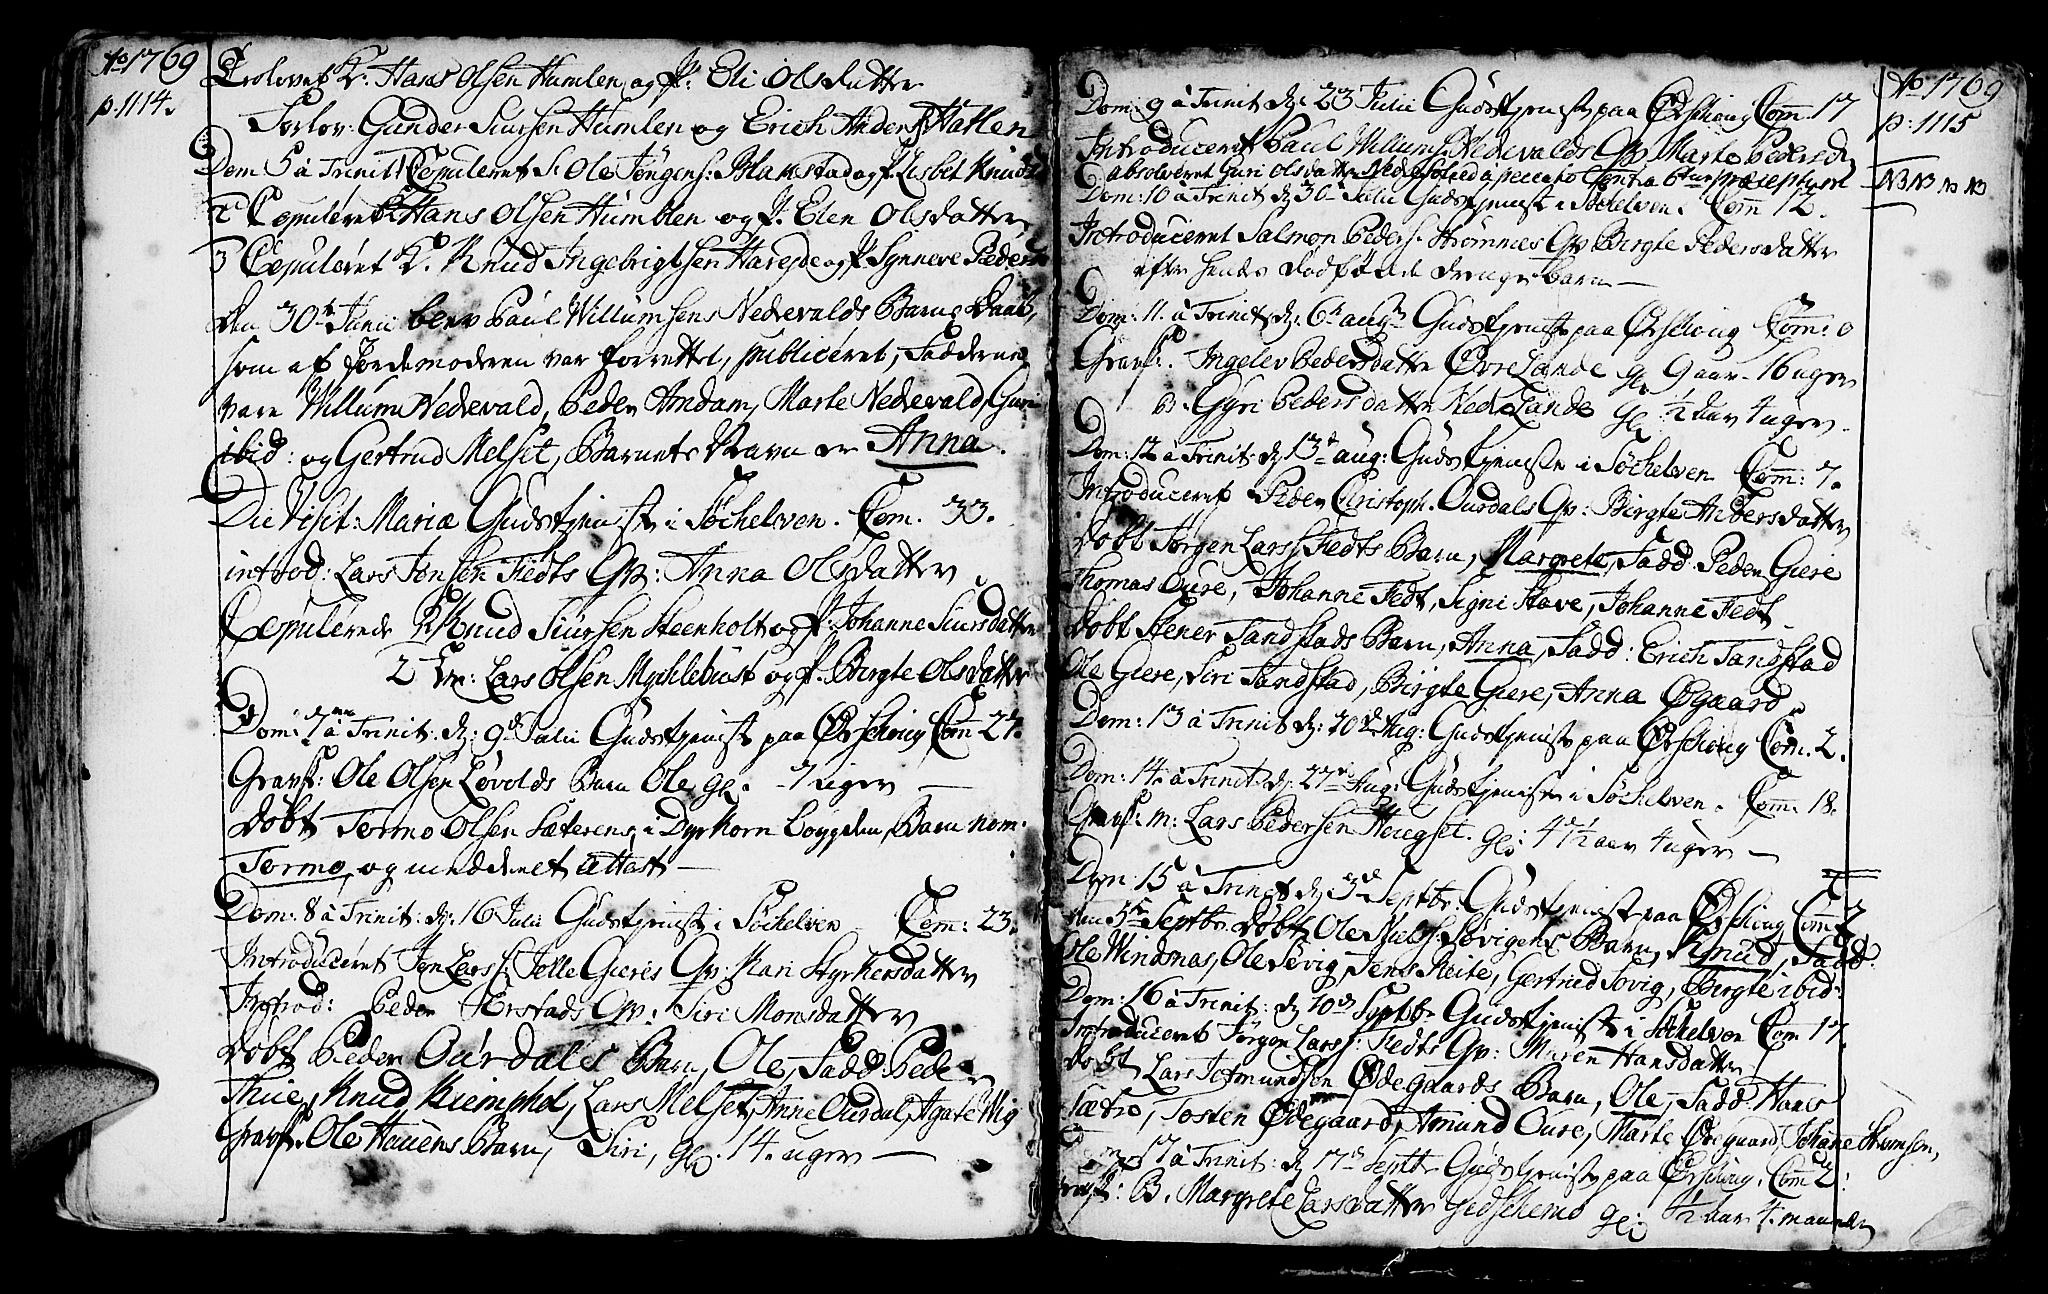 Ao 1769
p. 1114.
Trolovet K: Hans Olsen Humlen og P. Eli Olsdatter
Forlov: Gunder Siursen Humlen og Erich Anders: Hatlen
Dom 5 à Trinit: Copuleret S. Ole Jörgens: Blakstad og P. Lisbet Knudsd
2 Copuleret K Hans Olsen Humblen og P. Elen Olsdatter
3 Copuleret K. Knud Ingebrigtsen Hareide og P. Synneve Peders
Den 30te Junii blev Paul Willumsens Nedrevalds Barns Daab,
som af Jordemoderen var forrettet, publiceret, Fadderne
vare Willum Nedrevald, Peder Amdam, Marte Nedrevald, Guri
ibid: og Gertrud Melset, Barnets Navn er Anna.
Die Visit: Mariæ Gudstieniste i Söchelven. Com. 33.
introd: Lars Jensen Fedts Qv: Anna Olsdatter
Copulerede K Knud Siursen Steenholt og P. Johanne Siursdatter
2 Em: Lars Olsen Mychlebust og P. Birgte Olsdatter
Dom: 7 à Trinit: d: 9de Julii Gudstienist paa Örschoug Com 27.
Gravf: Ole Olsen Lövolds Barn Ole gl. 7 uger
Döbt Tormo Olsen Sæterens i Dyrkorn Boygden, Barn nom:
Tormo, og meddeelt Attest
Dom: 8 à Trinit: d: 16 Julii Gudstienist i Söchelven Com: 23.
Introduceret Jon Lars: Jelle Gieres Qv: Kari Styrkersdatter
Introd: Peder Herstads Qv: Siri Monsdatter
Döbt Peder Ourdals Barn, Ole, Fadd: Peder
Thue, Knud Kiemphol, Lars Melset, Anne Ourdal, Agate Wig
Gravf. Ole Hauens Barn, Siri, gl. 14 uger
Ao 1769
p. 1115
NB NB NB NB
Dom: 9 à Trinit d: 23 Julii Gudstienist paa Örschoug Com 17
Introduceret Paul Willums: Nedrevalds Qv. Marte Pedersd
absolveret Guri Olsdatter a peccato contra 6tum præceptum
Dom: 10 à Trinit d 30te Julii Gudstienist i Söchelven. Com 12.
Introduceret Salmon Peders: Strömmes Qv Birgte Pedersdatter
efter hendes dödfödde drenge Barn
Dom: 11 à Trinit d: 6te augti Gudstienist paa Örschoug Com: 0
Gravf: Ingelev Pedersdatter Övre Lande gl 9 aar 16 uger
B. Gyri Pedersdatter Nedre Lande gl ½ aar 4 uger
Dom: 12 à Trinit d 13de aug: Gudstieniste i Söchelven Com: 7.
Introduceret Peder Christoph. Ourdals Qv: Birgte Andersdatter
Döbt Jörgen Lars: Fedts Barn, Margrete, Fadd. Peder Giere
Thomas Oure, Johanne Fedt, Signi Stave, Johanne Fedt
Döbt Stener Tandstads Barn, Anna, Fadd: Erich Tandstad
Ole Giere, Siri Tandstad, Birgte Giere, Anna Ögaard
Dom: 13 à Trinit d: 20de Aug: Gudstienist paa Örschoug Com. 2.
Dom: 14 à Trinit d. 27de Aug: Gudstieniste i Söchelven. Com: 18.
Gravf: m: Lars Pedersen Haugset. gl: 47½ aar 4 uger
Dom: 15 à Trinit d 3de Septbr. Gudstienist paa Örschoug Com 2
den 5te Septbr. Döbt Ole Niels: Sövigens Barn, Knud, Fadd.
Ole Windnas, Ole Sövig, Jens Reite, Gertrud Sovig, Birgte ibid:
Dom: 16 à Trinit: d 10de Septbr Gudstienist i Söchelven Com 17.
Introduceret Jörgen Lars: Fedts Qv: Maren Hansdatter
Döbt Lars Jotmundsen Ödegaards Barn, Ole, Fadd: Hans
Sætre, Tosten Ödegaard, Amund Oure, Marte Ödegaard, Johane Strömsen,
Dom: 17 à Trinit: d 17de Septbr Gudstienist paa Örschoug. Com 2:
Gravf: B. Margrete Larsdatter Gedschemo gl: ½ aar 4 maaneder